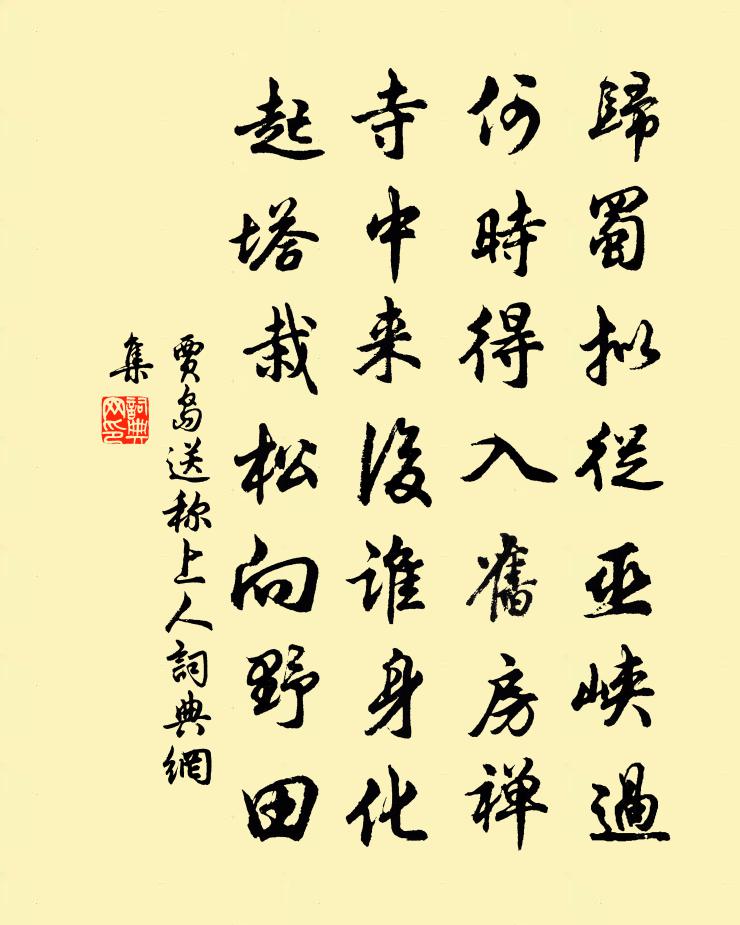 歸蜀拟從巫峽過
何時得入舊房禅
寺中来後谁身化
起塔栽松向野田
賈島送称上人詞典網
集
詞典
网印